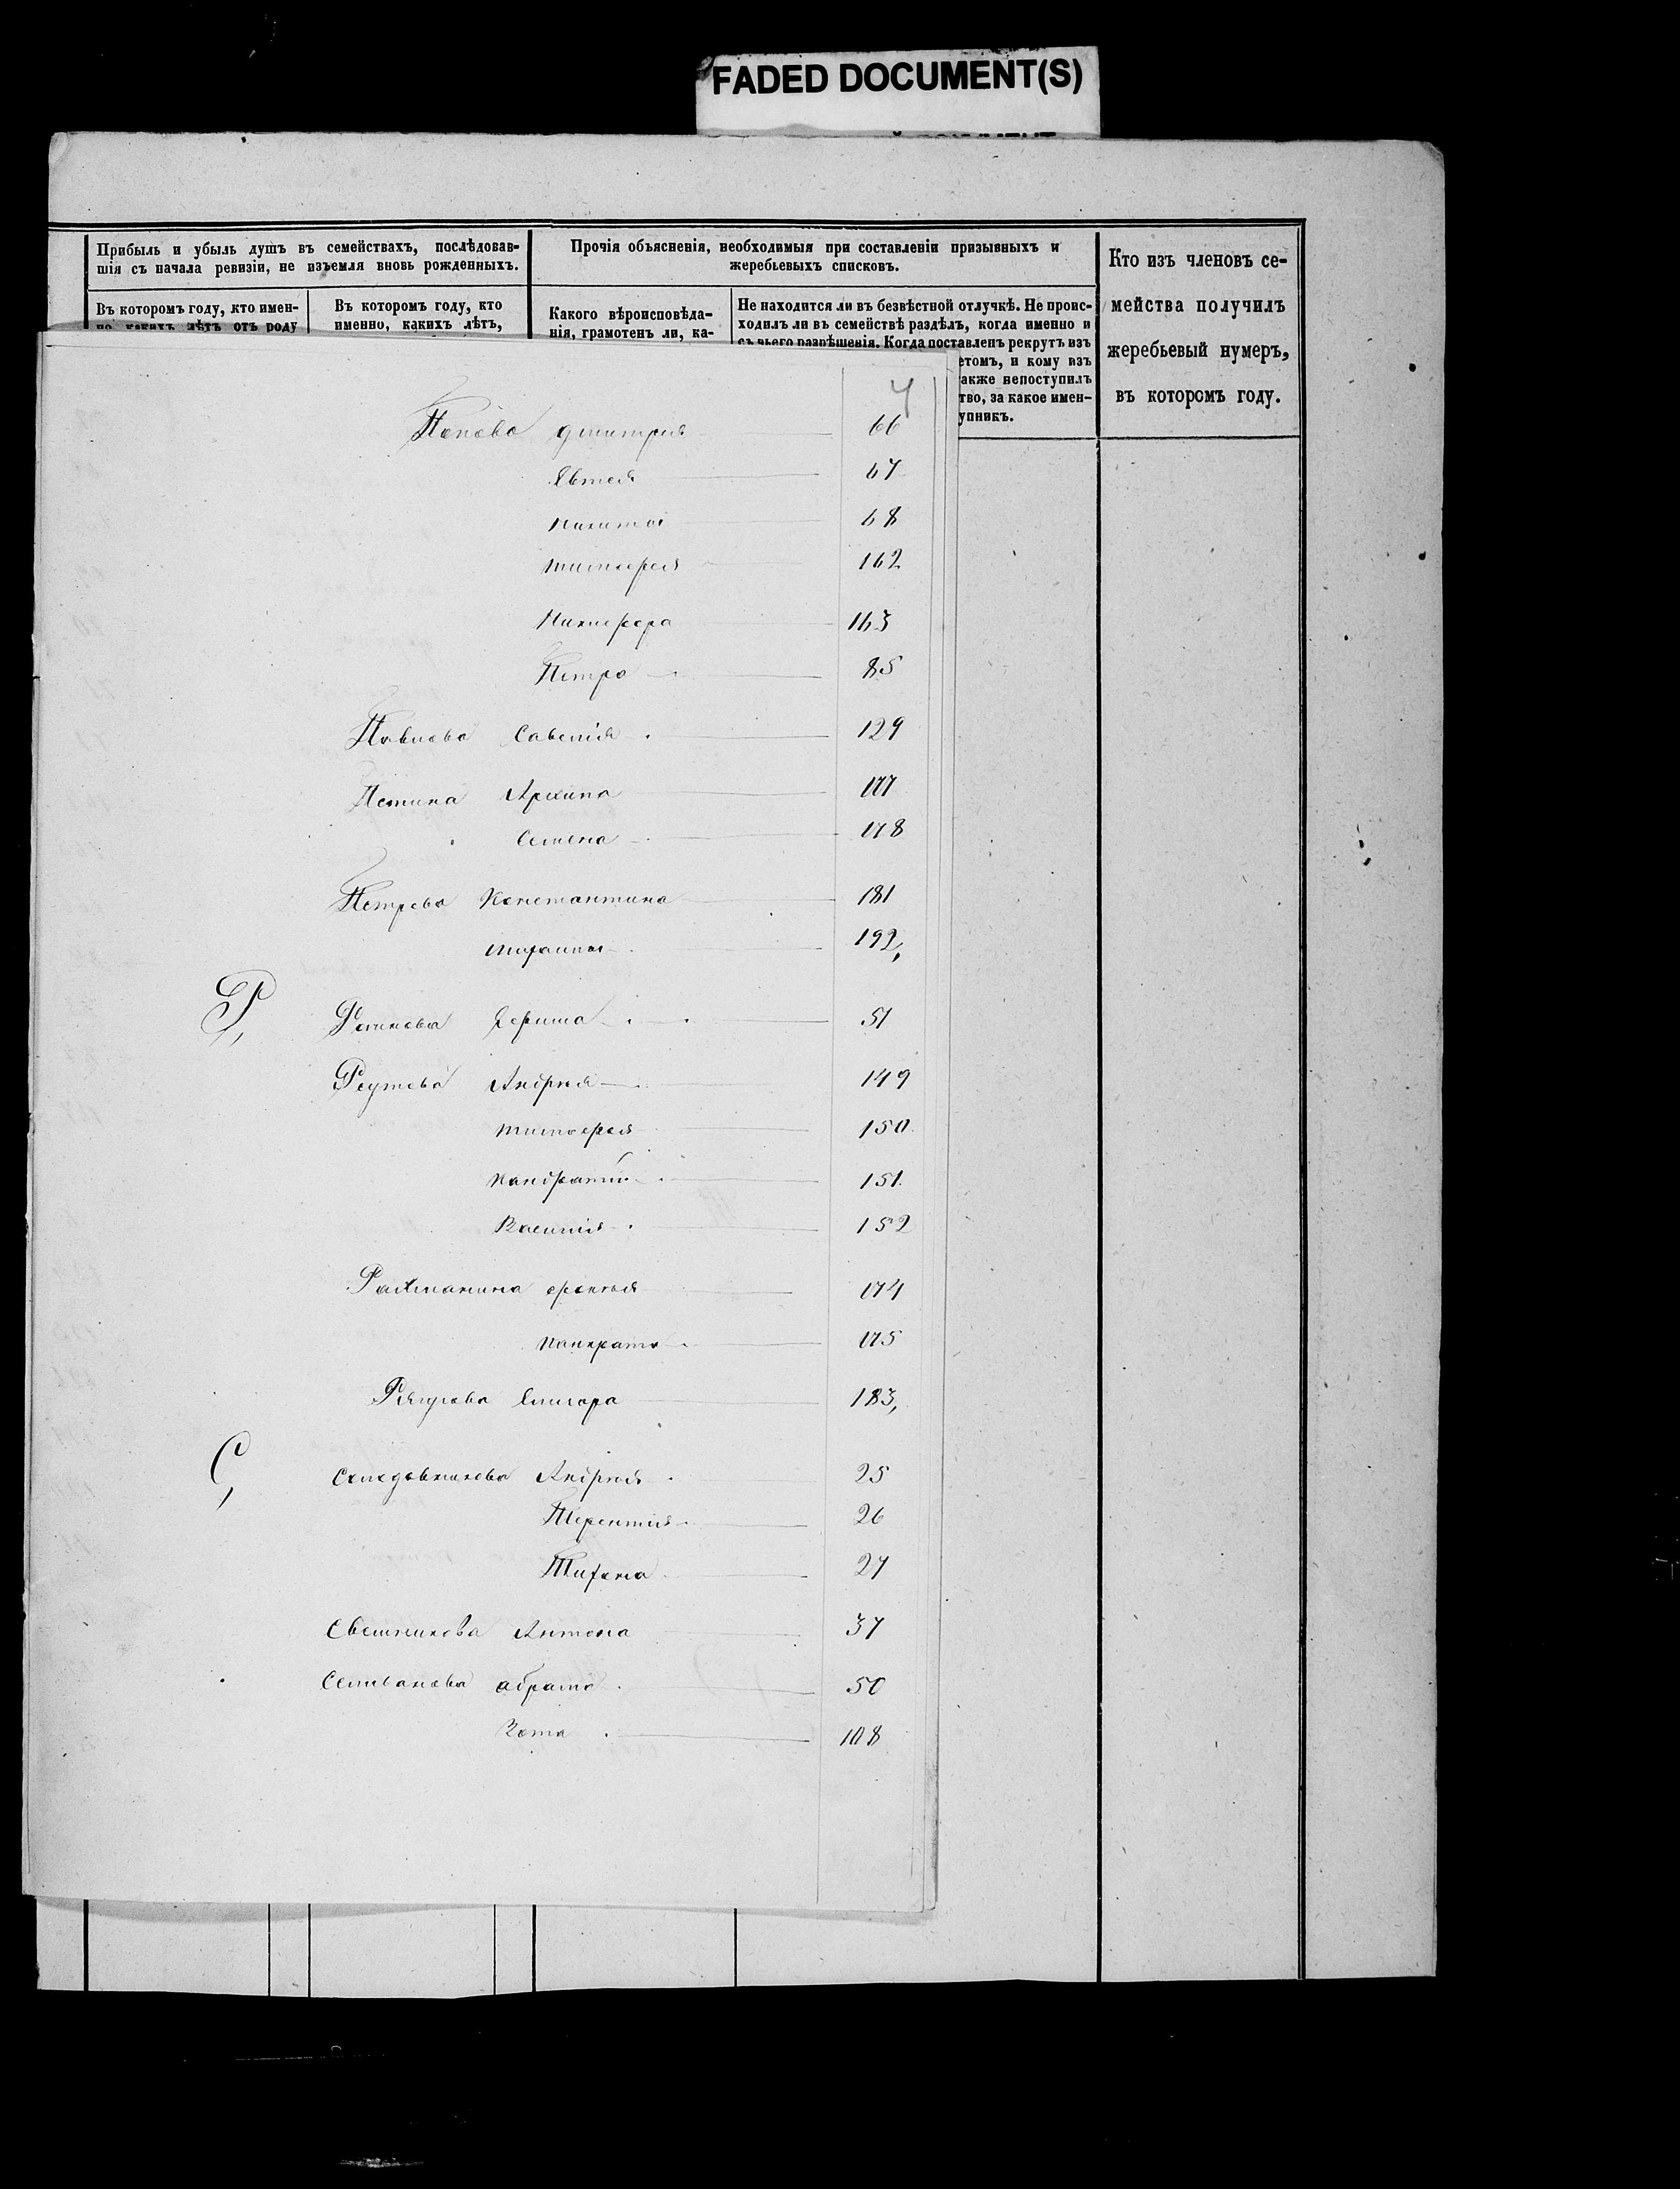 FADED DOCUMENT(S)
Прибыль и убыль душъ въ семействахъ, послѣдовав-
шія съ начала ревизіи, не изъемля вновь рожденныхъ.
Въ которомъ году, кто имен-
но, какихъ лѣтъ отъ роду
Въ которомъ году, кто
именно, какихъ лѣтъ,
Прочія объясненія, необходимыя при составленіи призывныхъ и
жеребьевыхъ списковъ.
Какого вѣроисповѣда-
нія, грамотенъ ли, ка-
Не находится ли въ безвѣстной отлучкѣ. Не проис-
ходилъ ли въ семействѣ раздѣлъ, когда именно и
съ чьего разрѣшенія. Когда поставленъ рекрутъ изъ
етомъ, и кому изъ
акже непоступилъ
тво, за какое имен-
упникъ.
Кто изъ членовъ се-
мейства получилъ
жеребьевый нумеръ,
въ которомъ году.
4
Попова Дмитрия 66
Евтея 67
Никиты 68
Тимофея 162
Никифора 163
Петра 85
Павлова Савелія 129
Петина Архипа 177
Семена 178
Петрова Константина 181
192,
Р,
51
Реутова Андрея 149
Тимофея 150
Кандратій 151
Василія 152
Рахманина 174
Панкрата 175
183,
С,
Андрея 25
Терентія 26
Тихона 27
Свешникова Антона 37
Селиванова 50
Зота 108